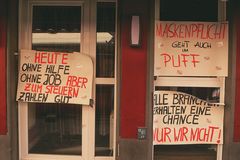 HEUTE
OHNE HILFE
OHNE JOB ABER
ZUM STEUERN
ZAHLEN GUT
MASKENPFLICHT
GEHT AUCH
IM
PUFF
ALLE BRANCHEN
ERHALTEN EINE
CHANCE
NUR WIR NICHT!